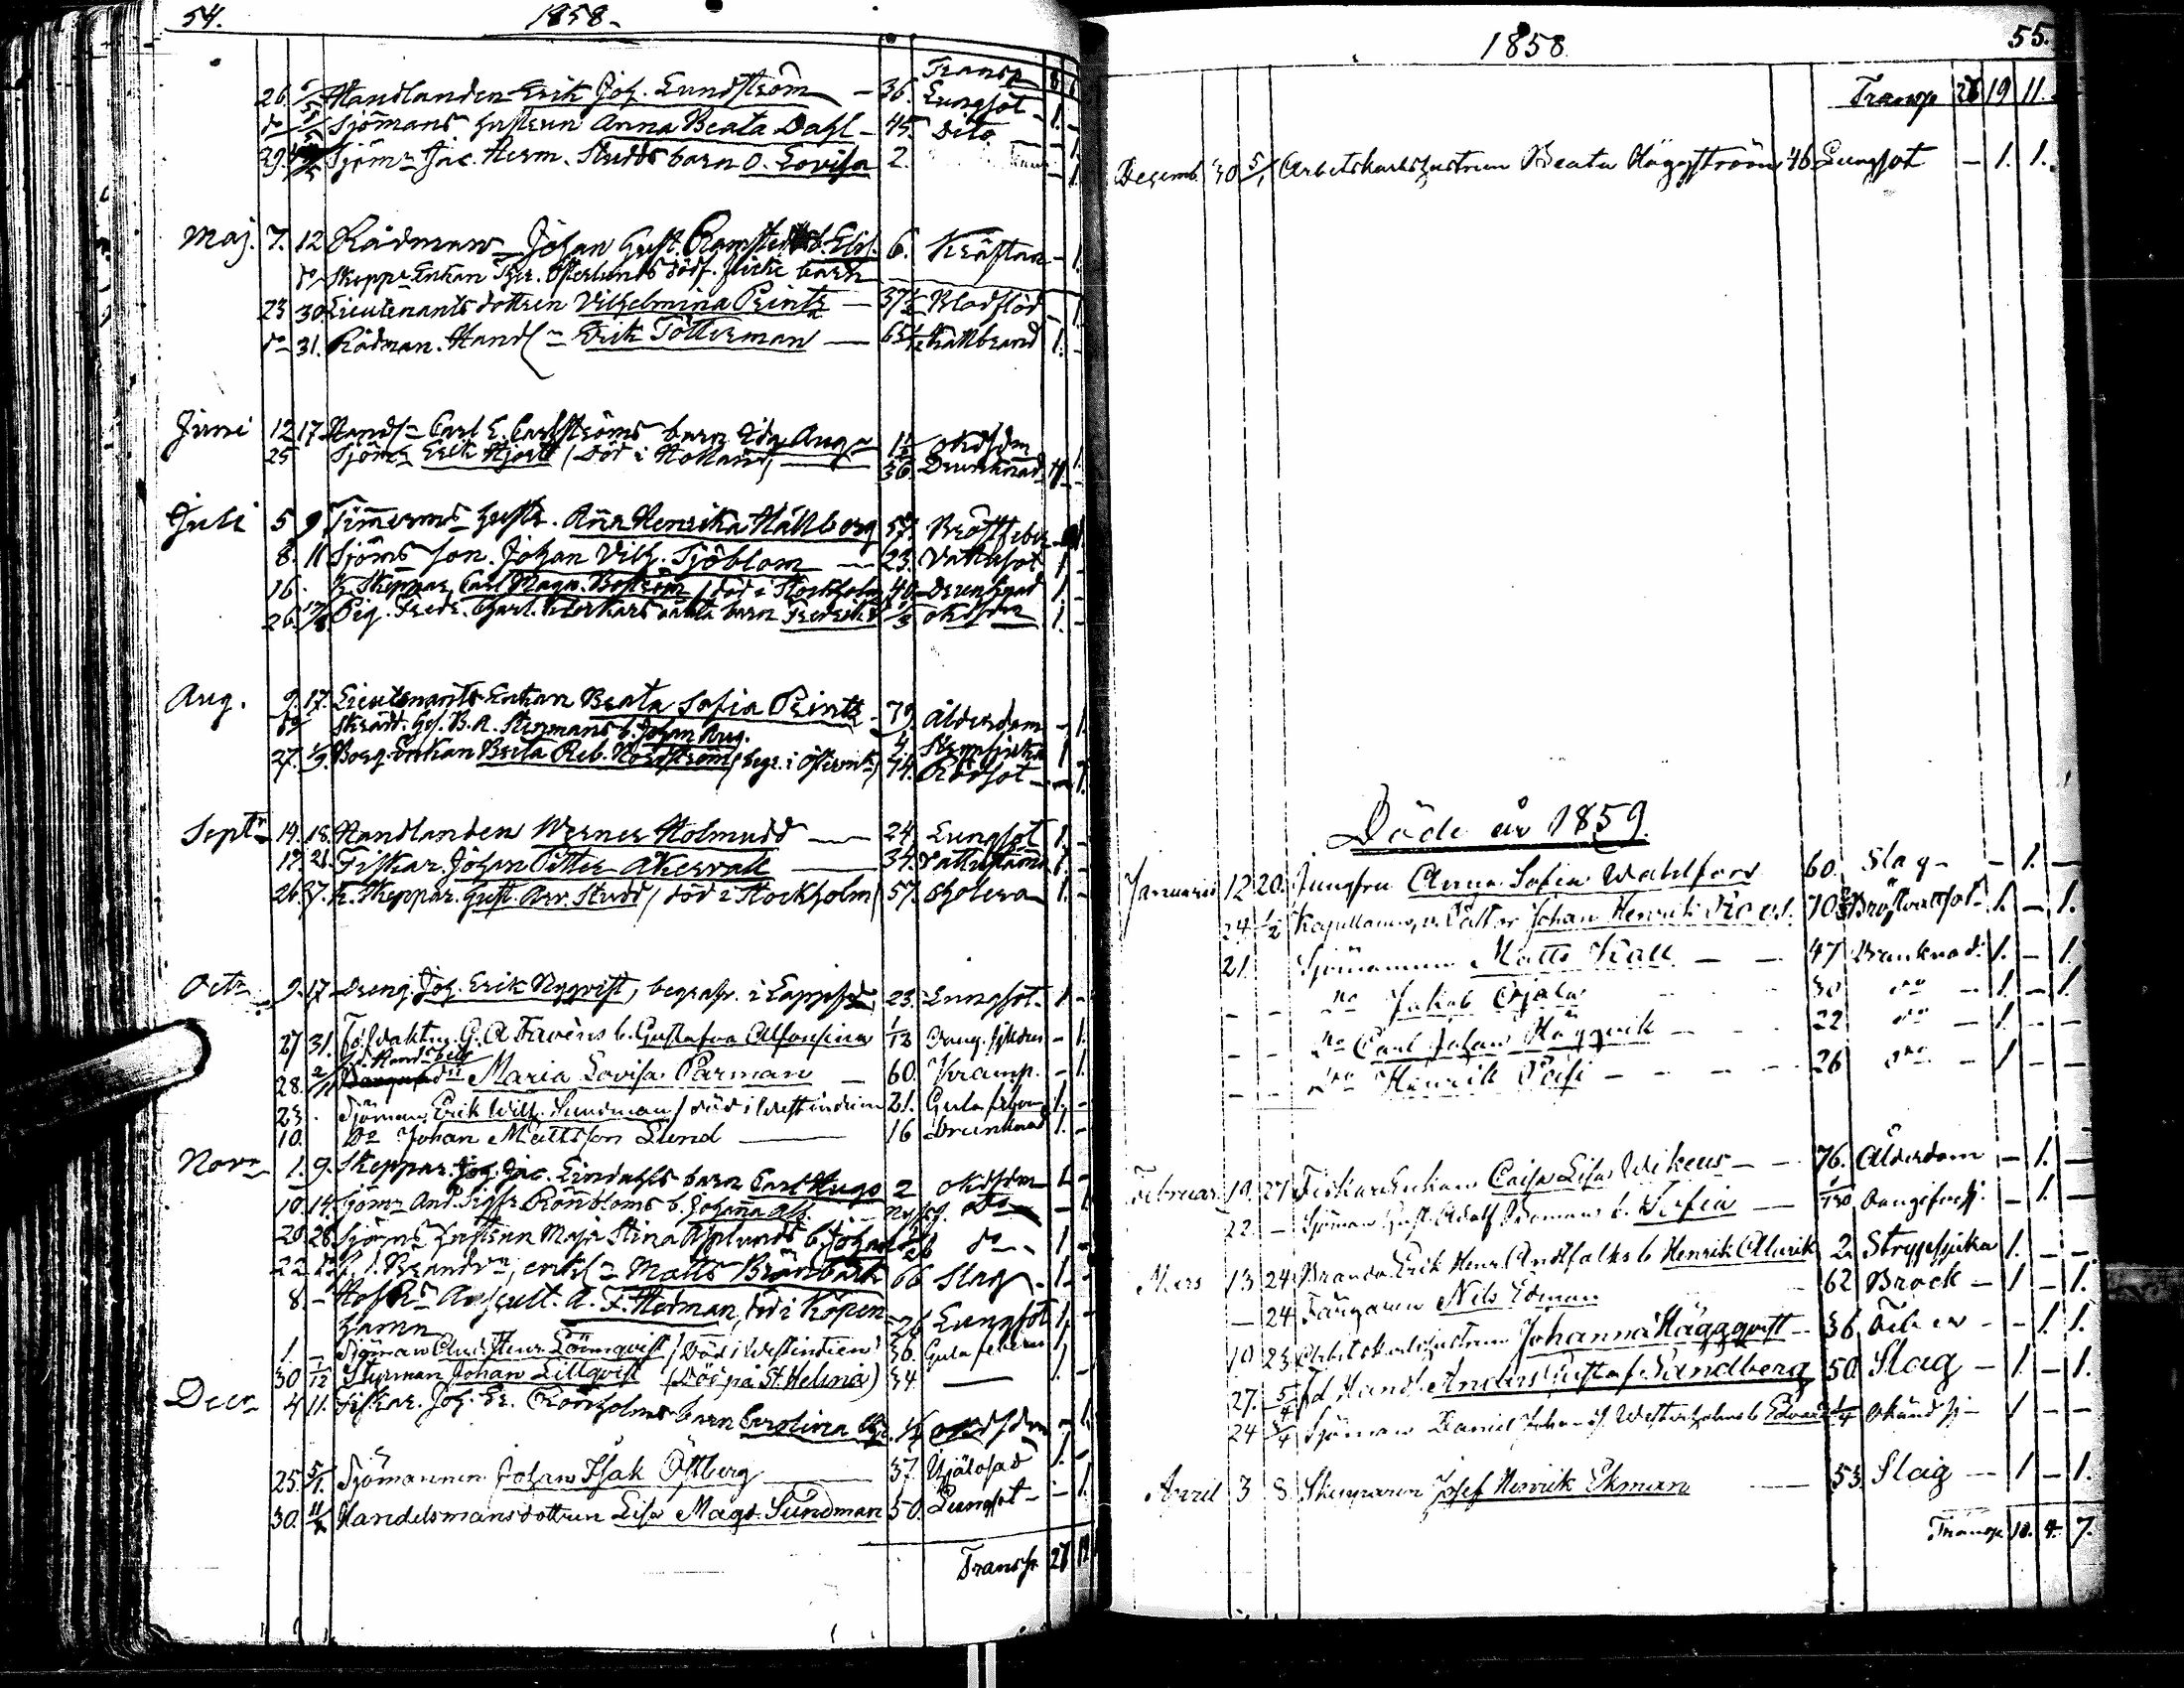 54. 1858.
Transp 8
26. 6/5 Handlanden Erik Joh. Lundström 36. Lungsot 1. -
do Sjömans hustrun Anna Beata Dahl - 45. Dito - 1
29. Sjömn Jac. Herm. Studds barn O. Lovisa 2. 1
Maj. 7. 12 Rådmann Johan Gust. Ramstedts b. 6. Kräftan - 1
do Skeppr Enkan Österlunds dödf. flicke barn
23 30 Lieutenants dottren Vilhelmina Printz 37 1/2 Blodflöd - 1
do 31. Rådman. Handl Erik Tötterman 65 Kallbrand 1. -
Juni 12 17 Handl Carl E. Carlströms barn Ida Aug 1 1/2 oKdsdm 1
25 Sjömn Erik Hjort (död i Holland) 36. Drunknad 1 -
Juli 5 9 Timmerms hustr. Anna Henrika Hällberg 57. Bröstfeber - 1
8. 11 Sjöms son. Johan Vilh. Sjöblom 23. Vattusot 1 -
16. Skeppar Carl Magn. Boström (död i Stockholm) 40. Drunknad 1. -
26. Fredr. barn Fredrik 1/3 oKdsdm 1. -
Aug. 9. 17. Lieutenants Enkan Beata Sofia Printz 79. Ålderdom - 1.
do Skrädd. Ges. B. A. Stenmans b. Johan Aug. 4. 1
27. 1/9. Borg. Enkan Brita Reb. Nordström (begr. i ) 74. Rödsot - 1.
Septr 14. 18. Handlanden Werner Holmudd 24. Lungsot 1. -
17 21. Fiskar. Johan Petter Åkervall 34. 1. -
26. 3/7. Skeppar. Gust. Arv. Studd (död i Stockholm) 57. Cholera 1. -
Octr 9. 17 Dreng. Joh. Erik Nyqvist, begrafv. i Lappfjd 23. Lungsot. 1. -
27 31. G. A. Favéns b. Gustafva Alfonsina 1/12 - 1.
28. 2/11 Maria Lovisa Parman 60. Kramp. - 1.
23. Sjöman Erik Wilh. Sundman (död i Westindien 21. Gula febern 1. -
10. Do Johan Mattsson Lund 16 Drunknad 1. -
Novr 1. 9. Skeppar. Joh. Jac. Lindahls barn Carl Hugo 2 oKdsdm 1 -
10. 14. Sjömn And. Rönnbloms b. Johanna Alb. do - 1
20. 28 Sjömns hustrun Maja Stina Asplunds b. Johan do 1 -
22. Matts Brännback 66 Slag 1 -
8. - A. F. Hedman, död i Köpen-
hamn 26 Lungsot 1. -
1. - Sjöman Henr. Lönnqvist (död i Westindien) 36. Gula febern 1.
30 1/12 Styrman Johan Lillqvist (Död på St. Helena) 34. 1. -
Decr 4 11. Fiskar. Joh. Er. Cronholms barn Carolina oKdsdm - 1.
25. 5/1. Sjömannen Johan Isak Östberg 37. 1. -
30. Handelsmansdottren Lisa Magd. Sundman 50. Lungsot - - 1.
Transp. 27
1858. 55.
Transp 26 19 11.
Decemb. 30 5/1 Arbetskarlshustrun Beata Häggström 46. Lungsot - 1. 1.
Döde år 1859.
Januarii 12 20. Jungfru Anna Sofia Wahlfors 60. Slag - - 1. -
24 1/2 Johan Henrik 70 1. - 1.
21. Sjömannen Matts Kall - - 47 Drunknad. 1. - 1.
- - Do Jakob 30 do - 1. - 1.
- - Do Carl Johan Häggvik - - 22 do - 1. - -
- - Do Henrik - - - 26 do - 1 - -
Februar. 19. 27 Fiskar Enkan Caisa Lisa Wikeus - - 76. Ålderdom - 1. -
22. - Sjöman Gust. Adolf b. Sofia - - 1. -
Mars 13 24. Erik Henr. Andfalks b Henrik Alarik 2. Strypsjuka 1. - -
- 24 Färgaren Nils Edman 62 Brock - 1 - 1.
10 23 Arbetskarlshustrun Johanna Häggqvist - 36 Feber - - 1. 1.
27. 5/4 fd Handl. Anders Gustaf Sandberg 50 Slag - 1. - 1.
24 5/4 Sjöman Daniel Westerholms b Edvard Okänd sj 1 - -
April 3 8. Skepparen Josef Henrik Ekman 53 Slag - 1 - 1.
Transp 10. 4. 7.